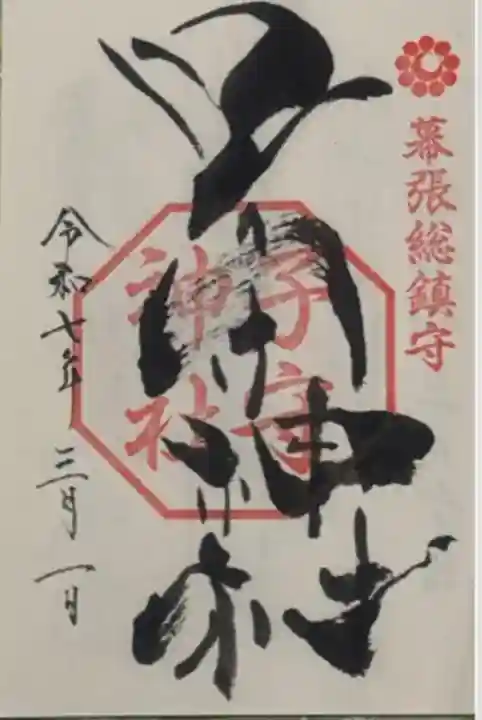 幕張総鎮守
子守
神社
子守神社
令和七年 三月一日